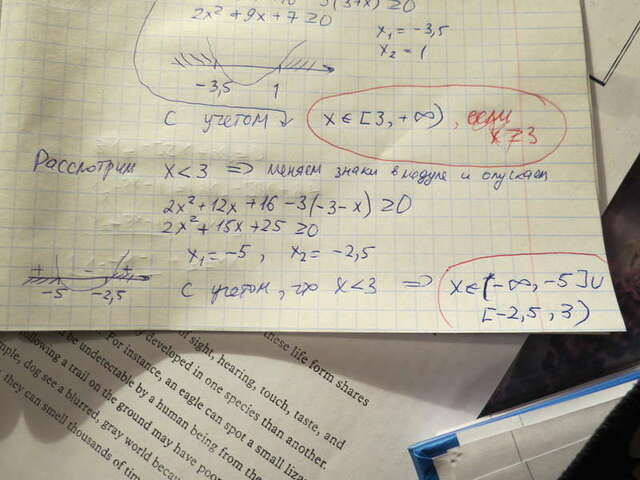 3(3+x) ≥0
2x² + 9x + 7 ≥0
x₁ = -3,5
x₂ = 1
-3,5 1
С учетом x ∈ [3, +∞), если
x ≥ 3
Рассмотрим x < 3 => меняем знаки в модуле и опускаем
2x² + 12x + 16 - 3(-3-x) ≥0
2x² + 15x + 25 ≥0
x₁ = -5, x₂ = -2,5
+ - +
-5 -2,5
С учетом, что x < 3 => x ∈ (-∞, -5] ∪
[-2,5, 3)
these life form shares
of sight, hearing, touch, taste, and
developed in one species than another.
For instance, an eagle can spot a small liza
be undetectable by a human being from the
lowing a trail on the ground may have poor
mple, dog see a blurred, gray world becau
they can smell thousands of tim